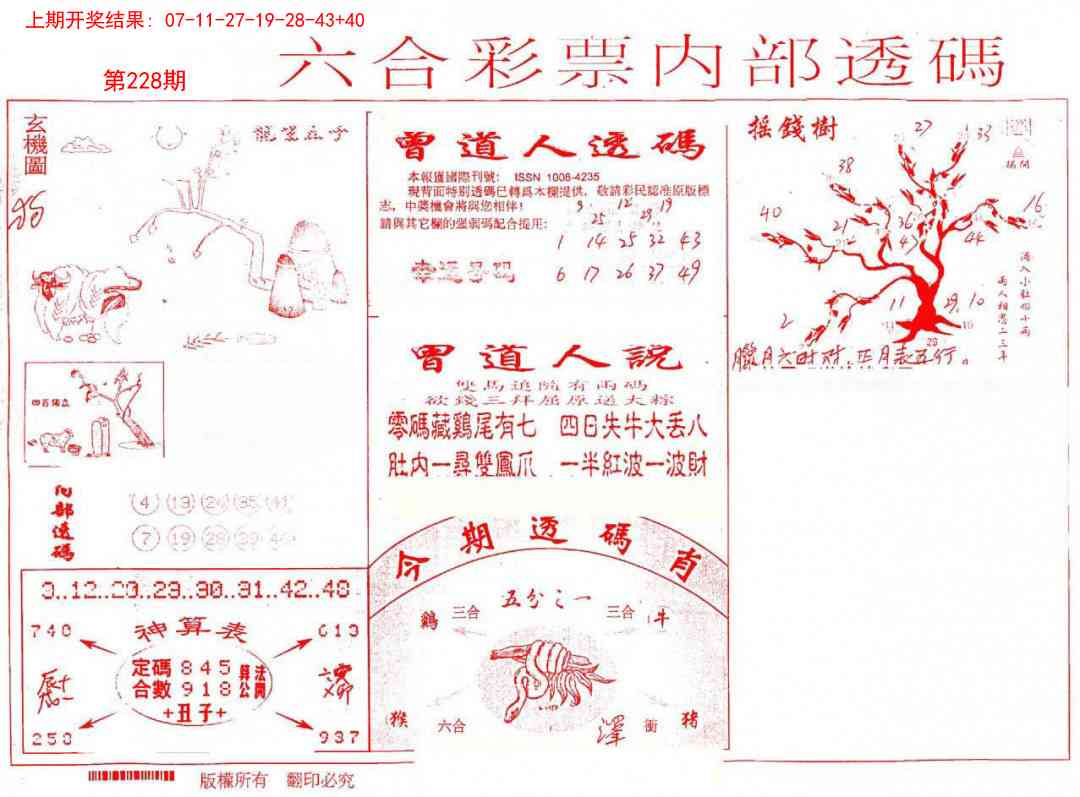 上期开奖结果: 07-11-27-19-28-43+40
第228期
六合彩票内部透碼
玄機圖
狗
龍望在子
四百獨立
内部透碼
4 13 24 35 41
7 19 28 39
3..12..20..23..30..31..42..48
神算表
740
613
定碼 845
合數 918
算法公開
+丑子+
250
937
曾道人透碼
本報獲國際刊號: ISSN 1008-4235
現背面特别透碼已轉爲本欄提供,敬請彩民認准原版標
志,中獎機會將與您相伴!
9 12 19
25 28
請與其它欄的强弱碼配合提用:
1 14 25 32 43
幸運号码
6 17 26 37 49
曾道人說
雙馬追隨有兩碼
欲錢三拜屈原送大粽
零碼藏鷄尾有七 四日失牛大丢八
肚内一尋雙鳳爪 一半紅波一波財
今期透碼肖
五分之一
鷄 三合
三合 牛
猴 六合
澤
衝 豬
摇錢樹
27
33
38
40
16
21
36
43
44
2
11
29
10
23
臘月六时时.正月表五行。
版權所有 翻印必究